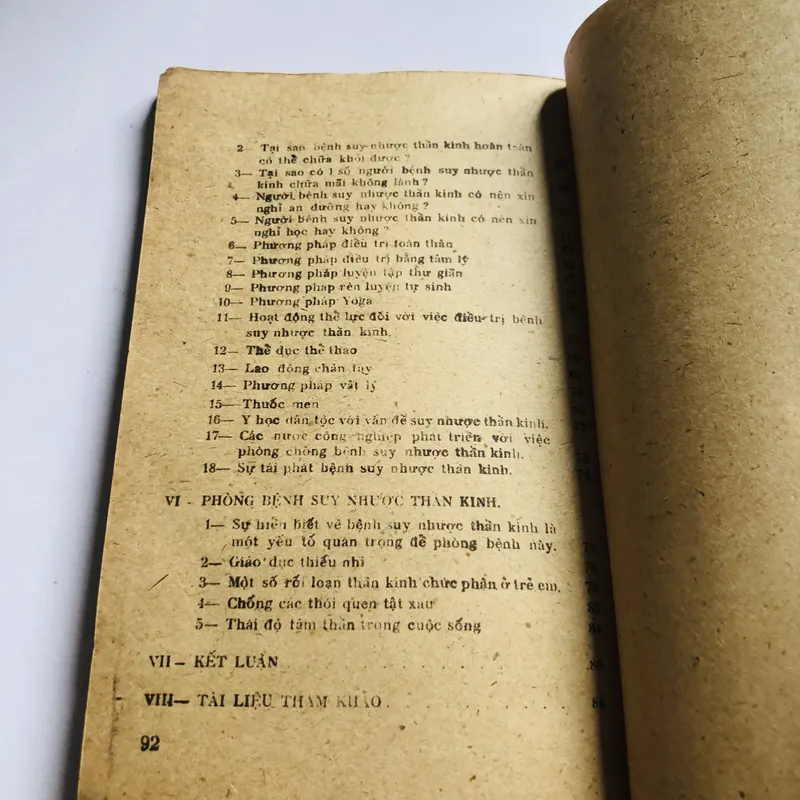 2— Tại sao bệnh suy nhược thần kinh hoàn toàn
có thể chữa khỏi được ?
3— Tại sao có 1 số người bệnh suy nhược thần
kinh chữa mãi không lành ?
4— Người bệnh suy nhược thần kinh có nên xin
nghỉ an dưỡng hay không ?
5— Người bệnh suy nhược thần kinh có nên xin
nghỉ học hay không ?
6— Phương pháp điều trị toàn thân
7— Phương pháp điều trị bằng tâm lý
8— Phương pháp luyện tập thư giãn
9— Phương pháp rèn luyện tự sinh
10— Phương pháp Yoga
11— Hoạt động thể lực đối với việc điều trị bệnh
suy nhược thần kinh.
12— Thể dục thể thao
13— Lao động chân tay
14— Phương pháp vật lý
15— Thuốc men
16— Y học dân tộc với vấn đề suy nhược thần kinh.
17— Các nước công nghiệp phát triển với việc
phòng chống bệnh suy nhược thần kinh.
18— Sự tái phát bệnh suy nhược thần kinh.
VI - PHÒNG BỆNH SUY NHƯỢC THẦN KINH.
1— Sự hiểu biết về bệnh suy nhược thần kinh là
một yếu tố quan trọng để phòng bệnh này.
2— Giáo dục thiếu nhi
3— Một số rối loạn thần kinh chức phận ở trẻ em.
4— Chống các thói quen tật xấu
5— Thái độ tâm thần trong cuộc sống
VII — KẾT LUẬN
VIII— TÀI LIỆU THAM KHẢO .
92